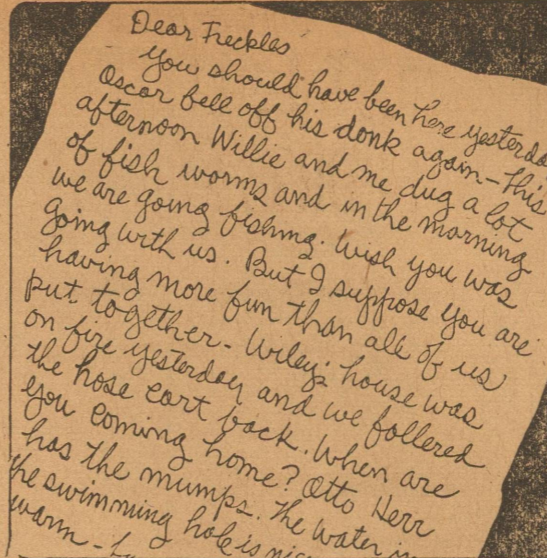 Dear Freckles
You should have been here yesterda
Oscar fell off his donk again - This
afternoon Willie and me dug a lot
of fish worms and in the morning
we are going fishing. Wish you was
going with us. But I suppose you are
having more fun than all of us
put together - Wiley's house was
on fire yesterday and we follered
the hose cart back. When are
you coming home? Otto Herr
has the mumps. The water in
the swimming hole is nice
warm -